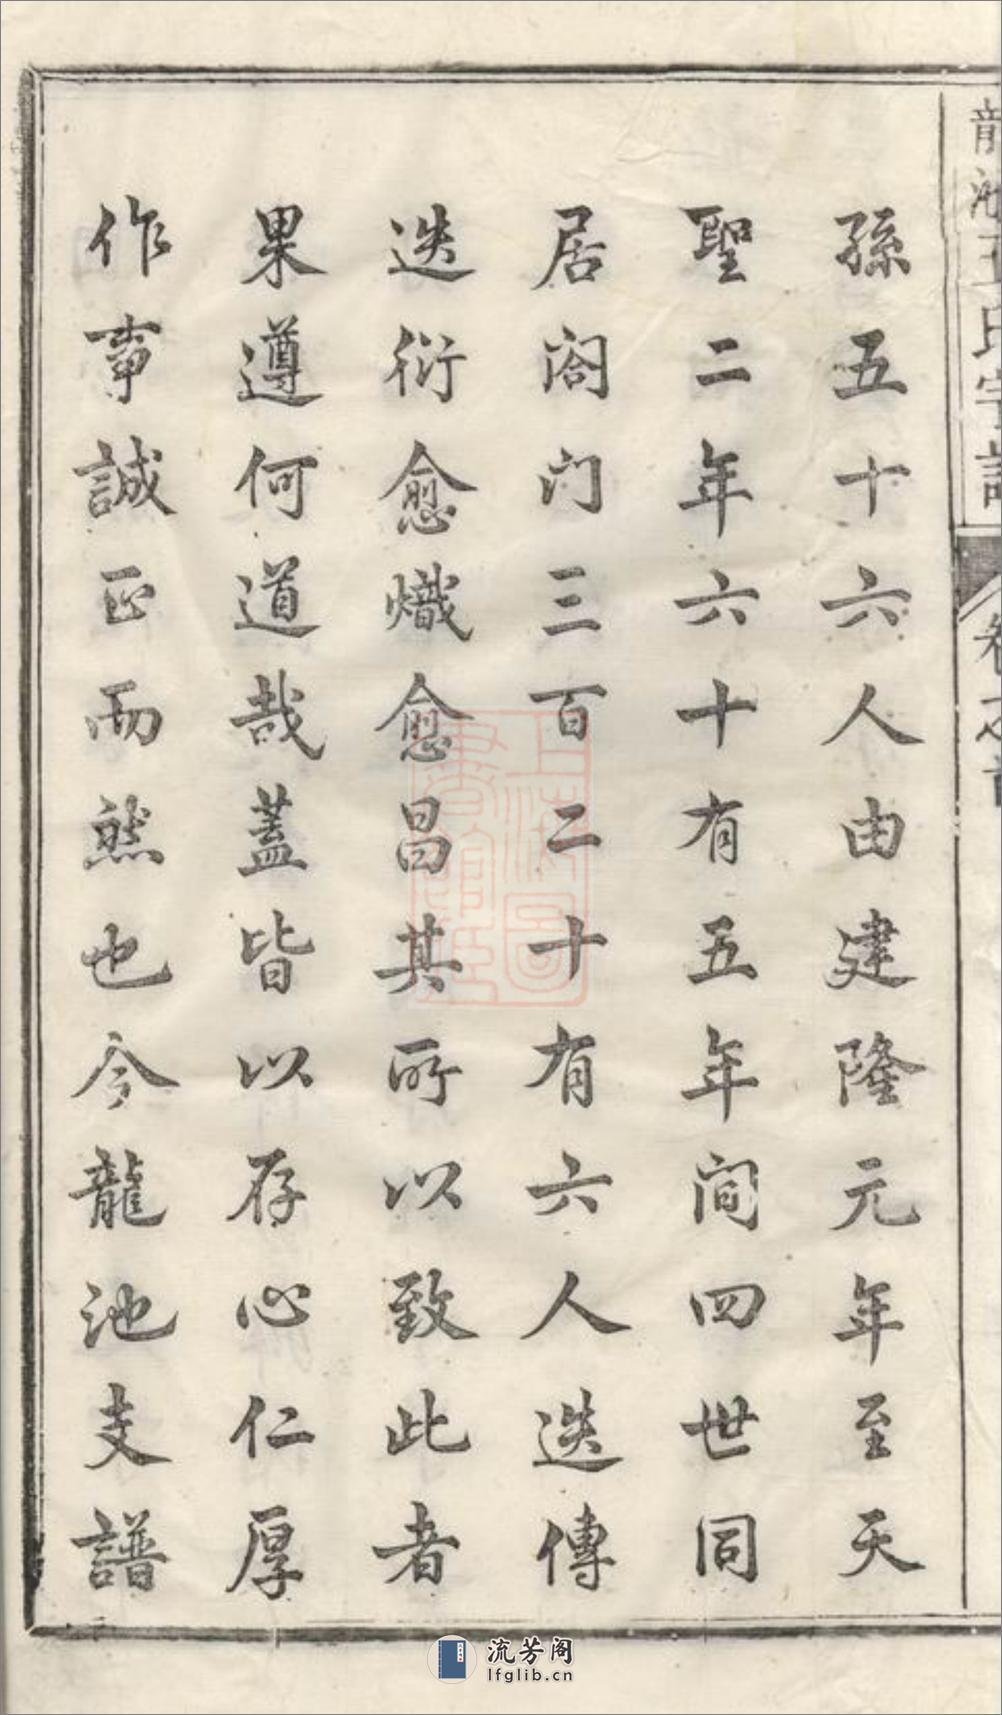 龍池王氏宗譜 卷之首
孫五十六人由建隆元年至天
聖二年六十有五年間四世同
居閤门三百二十有六人迭傳
迭衍愈熾愈昌其所以致此者
果遵何道哉蓋皆以存心仁厚
作事誠正而然也今龍池支譜
上海圖書館藏
流芳阁
lfglib.cn